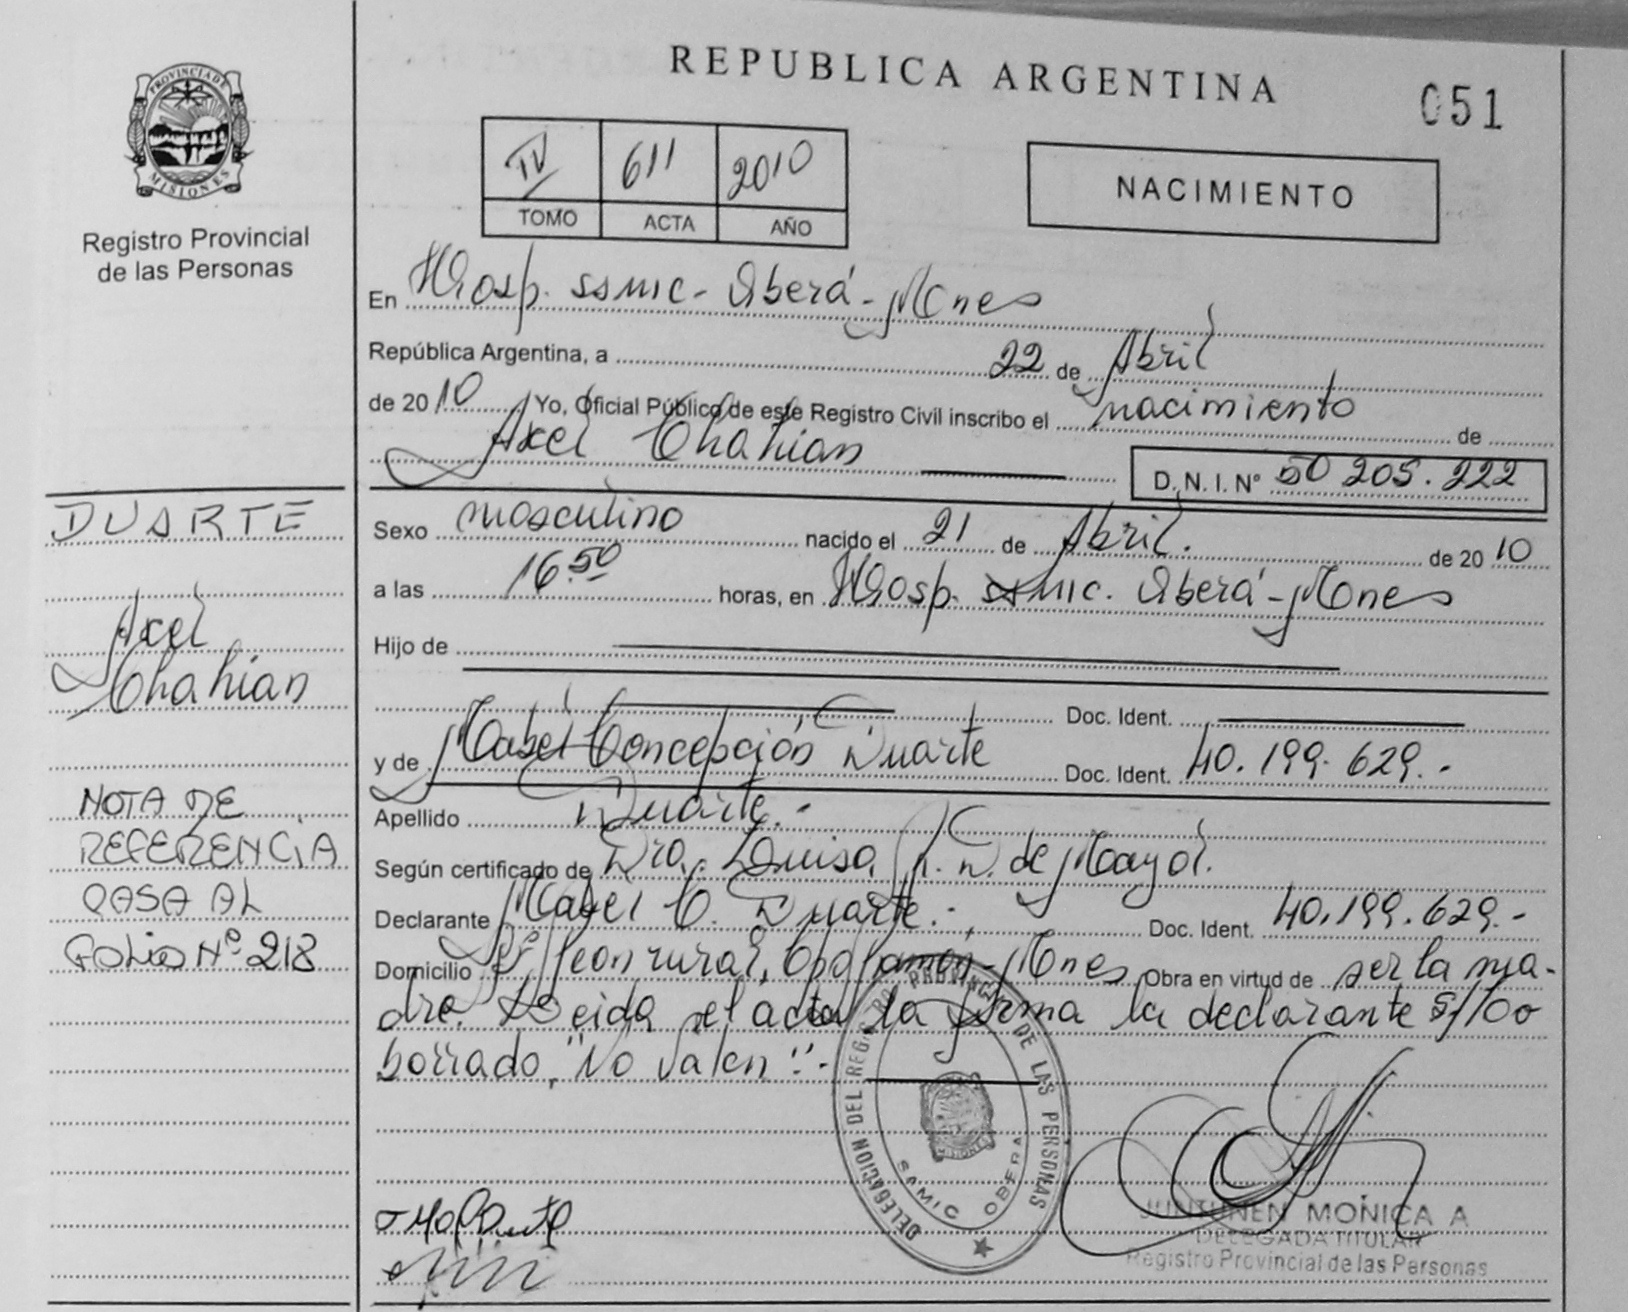 REPUBLICA ARGENTINA
051
PROVINCIA DE
MISIONES
Registro Provincial
de las Personas
IV 611 2010
TOMO ACTA AÑO
NACIMIENTO
En Hosp. SSMIC - Oberá - Mnes
República Argentina, a 22 de Abril
de 2010 Yo, Oficial Público de este Registro Civil inscribo el nacimiento de
Axel Chahian
D. N. I. Nº 50 205.222
DUARTE
Axel
Chahian
NOTA DE
REFERENCIA
PASA AL
FOLIO Nº 218
Sexo masculino nacido el 21 de Abril. de 2010
a las 16.50 horas, en Hosp. SSMIC. Oberá - Mnes
Hijo de
Doc. Ident.
y de Mabel Concepción Duarte Doc. Ident. 40.199.629.-
Apellido Duarte.-
Según certificado de Dra. Luisa N. de Mayol.
Declarante Mabel C. Duarte.- Doc. Ident. 40.199.629.-
Domicilio peon rural, Mnes Obra en virtud de ser la ma-
dre. Leida el acta la firma la declarante
borrado, "No valen".-
DELEGACION DEL REGISTRO PROVINCIAL DE LAS PERSONAS
MISIONES
SAMIC OBERA
JUNTUNEN MONICA A
DELEGADA TITULAR
Registro Provincial de las Personas